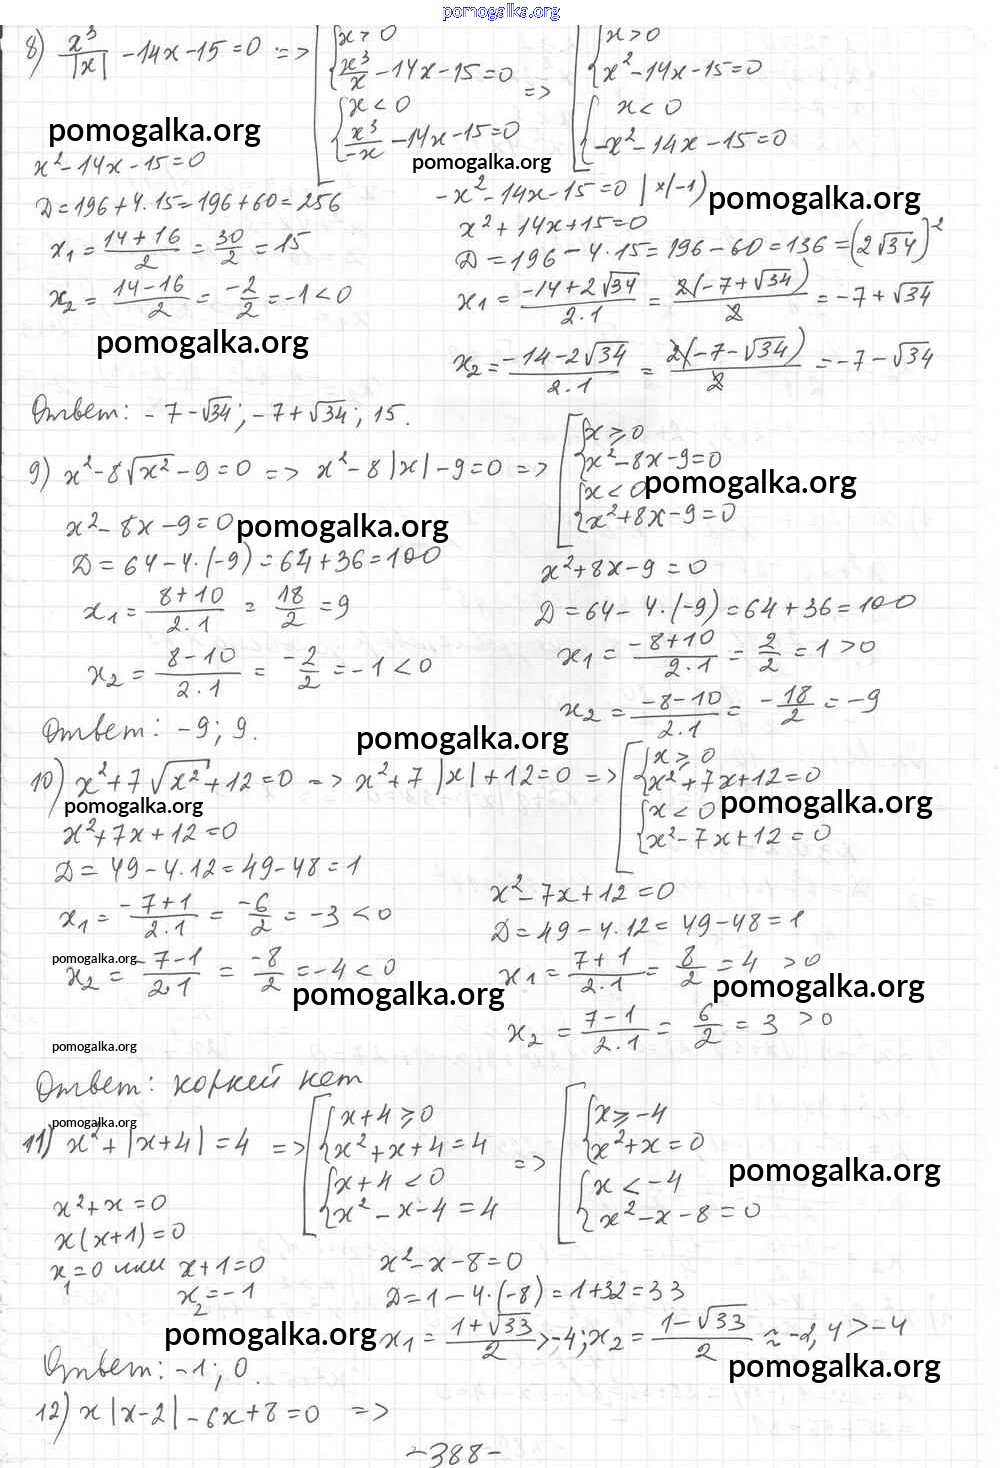 pomogalka.org
8) x³/|x| - 14x - 15 = 0 => [ { x > 0
{ x³/x - 14x - 15 = 0
{ x < 0
{ x³/-x - 14x - 15 = 0
=> [ { x > 0
{ x² - 14x - 15 = 0
{ x < 0
{ -x² - 14x - 15 = 0
pomogalka.org
pomogalka.org
x² - 14x - 15 = 0
D = 196 + 4·15 = 196 + 60 = 256
x₁ = (14+16)/2 = 30/2 = 15
x₂ = (14-16)/2 = -2/2 = -1 < 0
pomogalka.org
-x² - 14x - 15 = 0 | ×(-1)
pomogalka.org
x² + 14x + 15 = 0
D = 196 - 4·15 = 196 - 60 = 136 = (2√34)²
x₁ = (-14+2√34)/(2·1) = 2(-7+√34)/2 = -7+√34
x₂ = (-14-2√34)/(2·1) = 2(-7-√34)/2 = -7-√34
Ответ: -7-√34; -7+√34; 15.
9) x² - 8√x² - 9 = 0 => x² - 8|x| - 9 = 0 => [ { x ⩾ 0
{ x² - 8x - 9 = 0
{ x < 0
{ x² + 8x - 9 = 0
pomogalka.org
x² - 8x - 9 = 0
pomogalka.org
D = 64 - 4·(-9) = 64 + 36 = 100
x₁ = (8+10)/(2·1) = 18/2 = 9
x₂ = (8-10)/(2·1) = -2/2 = -1 < 0
x² + 8x - 9 = 0
D = 64 - 4·(-9) = 64 + 36 = 100
x₁ = (-8+10)/(2·1) = 2/2 = 1 > 0
x₂ = (-8-10)/(2·1) = -18/2 = -9
Ответ: -9; 9.
pomogalka.org
10) x² + 7√x² + 12 = 0 => x² + 7|x| + 12 = 0 => [ { x ⩾ 0
{ x² + 7x + 12 = 0
{ x < 0
{ x² - 7x + 12 = 0
pomogalka.org
pomogalka.org
x² + 7x + 12 = 0
D = 49 - 4·12 = 49 - 48 = 1
x₁ = (-7+1)/(2·1) = -6/2 = -3 < 0
pomogalka.org
x₂ = (-7-1)/(2·1) = -8/2 = -4 < 0
pomogalka.org
x² - 7x + 12 = 0
D = 49 - 4·12 = 49 - 48 = 1
x₁ = (7+1)/(2·1) = 8/2 = 4 > 0
pomogalka.org
x₂ = (7-1)/(2·1) = 6/2 = 3 > 0
pomogalka.org
Ответ: корней нет
pomogalka.org
11) x² + |x+4| = 4 => [ { x+4 ⩾ 0
{ x² + x + 4 = 4
{ x + 4 < 0
{ x² - x - 4 = 4
=> [ { x ⩾ -4
{ x² + x = 0
{ x < -4
{ x² - x - 8 = 0
pomogalka.org
x² + x = 0
x(x+1) = 0
x₁ = 0 или x + 1 = 0
x₂ = -1
x² - x - 8 = 0
D = 1 - 4·(-8) = 1+32 = 33
pomogalka.org
x₁ = (1+√33)/2 > -4; x₂ = (1-√33)/2 ≈ -2,4 > -4
pomogalka.org
Ответ: -1; 0.
12) x|x-2| - 6x + 8 = 0 =>
-388-